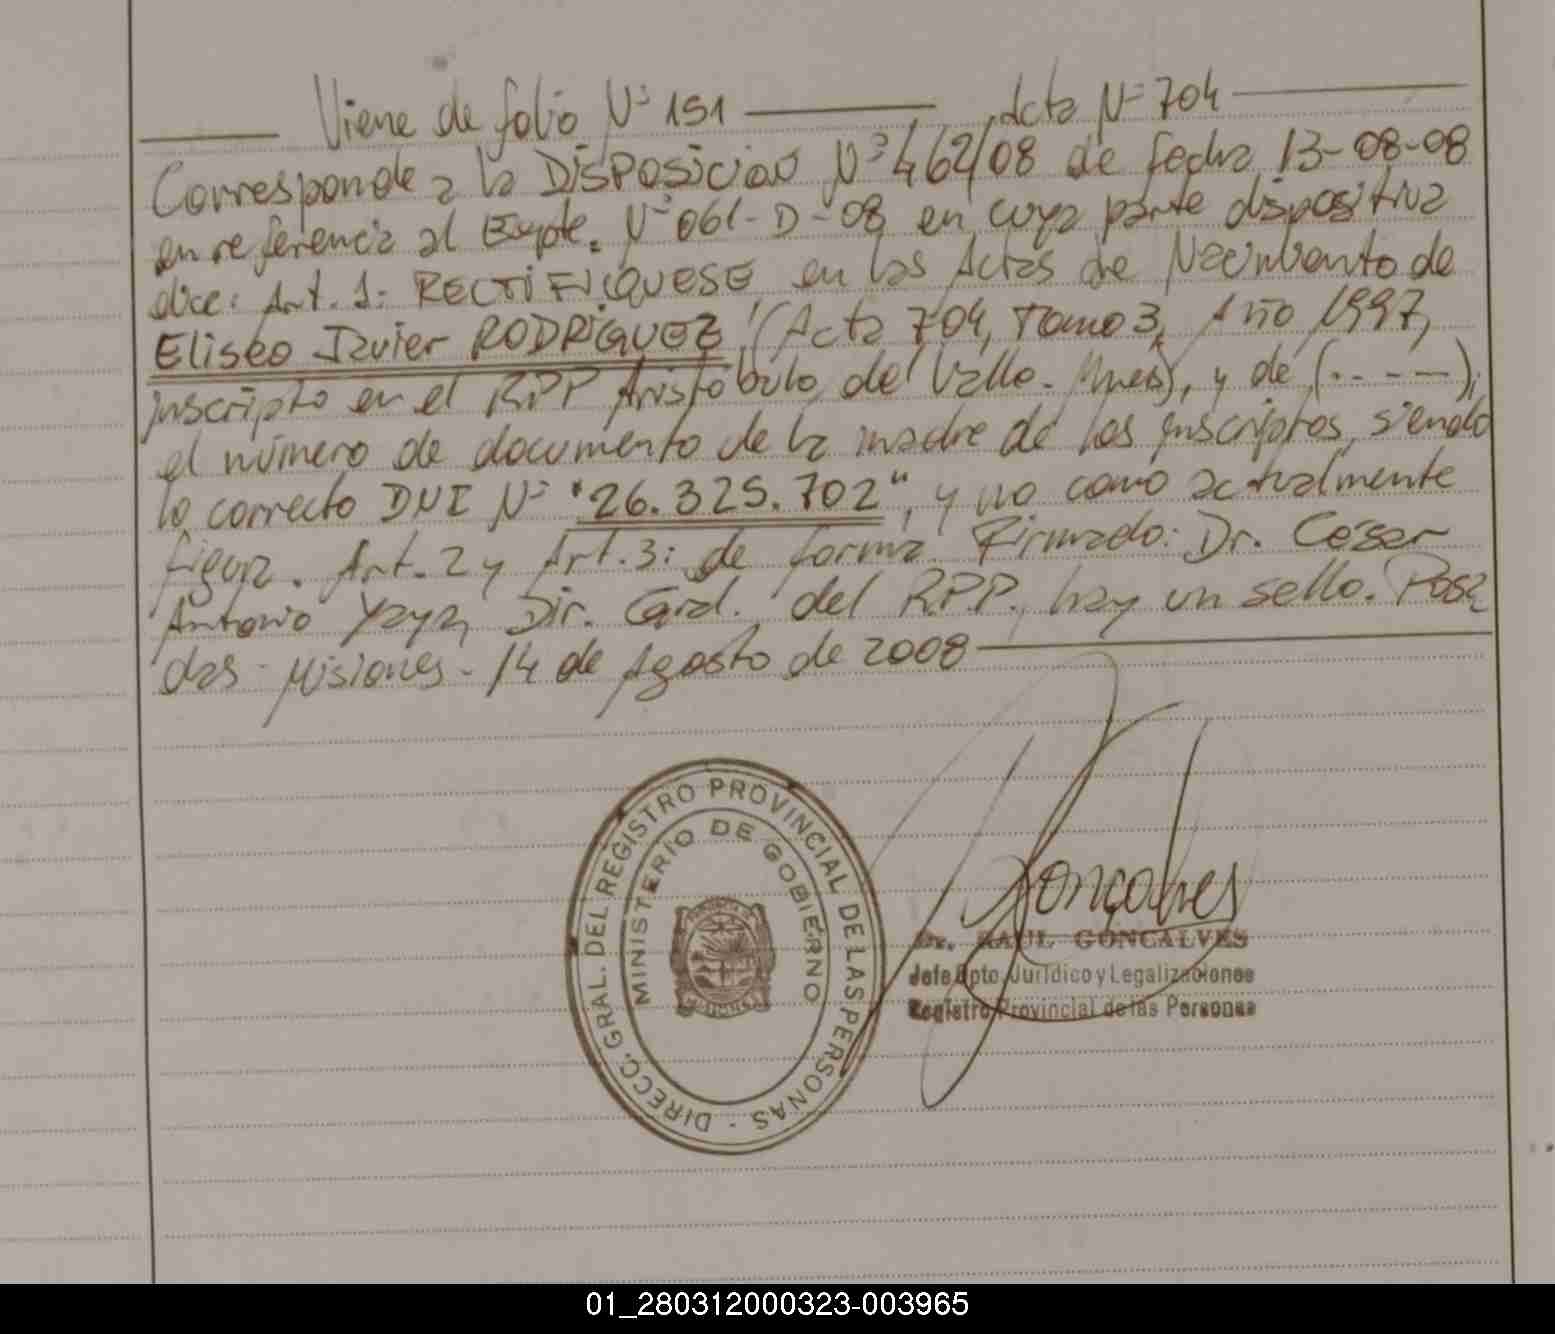 Viene de folio Nº 151 ——— Acta Nº 704 ———
Corresponde a la DISPOSICION Nº 462/08 de fecha 13-08-08
en referencia al Expte. Nº 061-D-08 en cuya parte dispositiva
dice: Art. 1: RECTIFIQUESE en las Actas de Nacimiento de
Eliseo Javier RODRIGUEZ (Acta 704, Tomo 3, Año 1997,
inscripto en el RPP Aristóbulo del Valle. Mnes), y de (-- - —);
el número de documento de la madre de los inscriptos, siendo
lo correcto DNI Nº "26.325.702", y no como actualmente
figura. Art. 2 y Art. 3: de forma. Firmado: Dr. César
Antonio Yaya, Dir. Gral. del R.P.P. hay un sello. Posa
das - Misiones - 14 de Agosto de 2008 ———
DIRECC. GRAL. DEL REGISTRO PROVINCIAL DE LAS PERSONAS -
MINISTERIO DE GOBIERNO
Gonçalves
Dr. RAUL GONCALVES
Jefe Dpto. Jurídico y Legalizaciones
Registro Provincial de las Personas
01_280312000323-003965